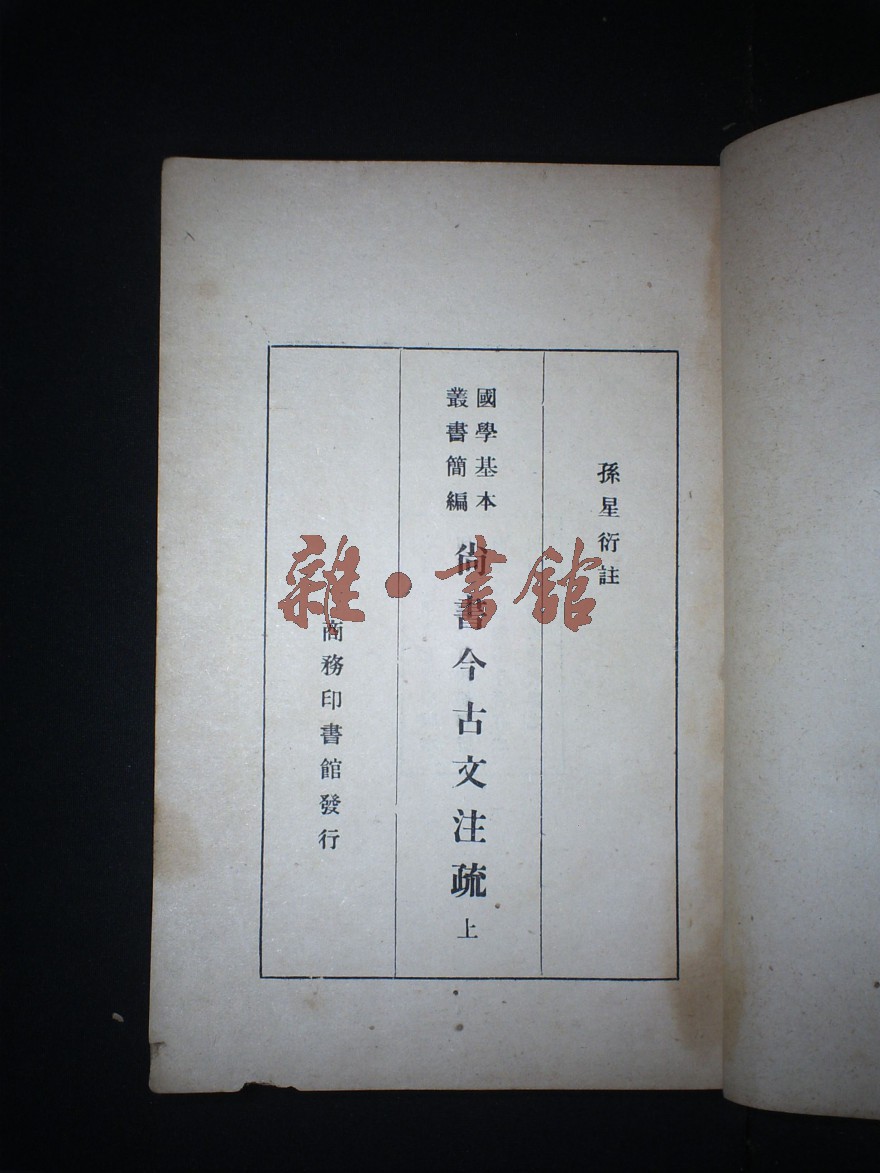 孫星衍註
國學基本
叢書簡編
尚書今古文注疏 上
商務印書館發行
雜·書館